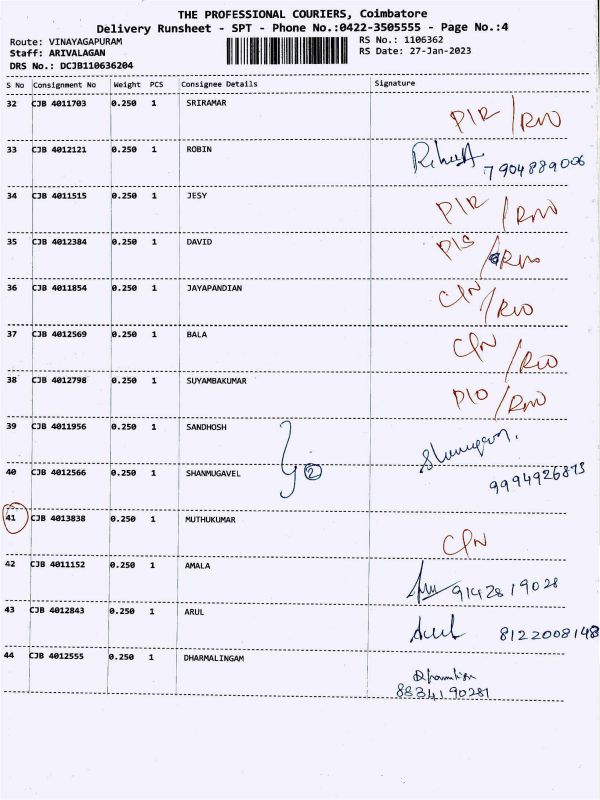 THE PROFESSIONAL COURIERS, Coimbatore
Delivery Runsheet - SPT - Phone No.:0422-3505555 - Page No.:4
Route: VINAYAGAPURAM
Staff: ARIVALAGAN
DRS No.: DCJB110636204
RS No.: 1106362
RS Date: 27-Jan-2023
S No Consignment No Weight PCS Consignee Details Signature
32 CJB 4011703 0.250 1 SRIRAMAR
33 CJB 4012121 0.250 1 ROBIN 7904889006
34 CJB 4011515 0.250 1 JESY
35 CJB 4012384 0.250 1 DAVID
36 CJB 4011854 0.250 1 JAYAPANDIAN
37 CJB 4012569 0.250 1 BALA
38 CJB 4012798 0.250 1 SUYAMBAKUMAR
39 CJB 4011956 0.250 1 SANDHOSH
2
40 CJB 4012566 0.250 1 SHANMUGAVEL 9994926873
41 CJB 4013838 0.250 1 MUTHUKUMAR
42 CJB 4011152 0.250 1 AMALA 9142819028
43 CJB 4012843 0.250 1 ARUL Arul 8122008148
44 CJB 4012555 0.250 1 DHARMALINGAM
8834190281